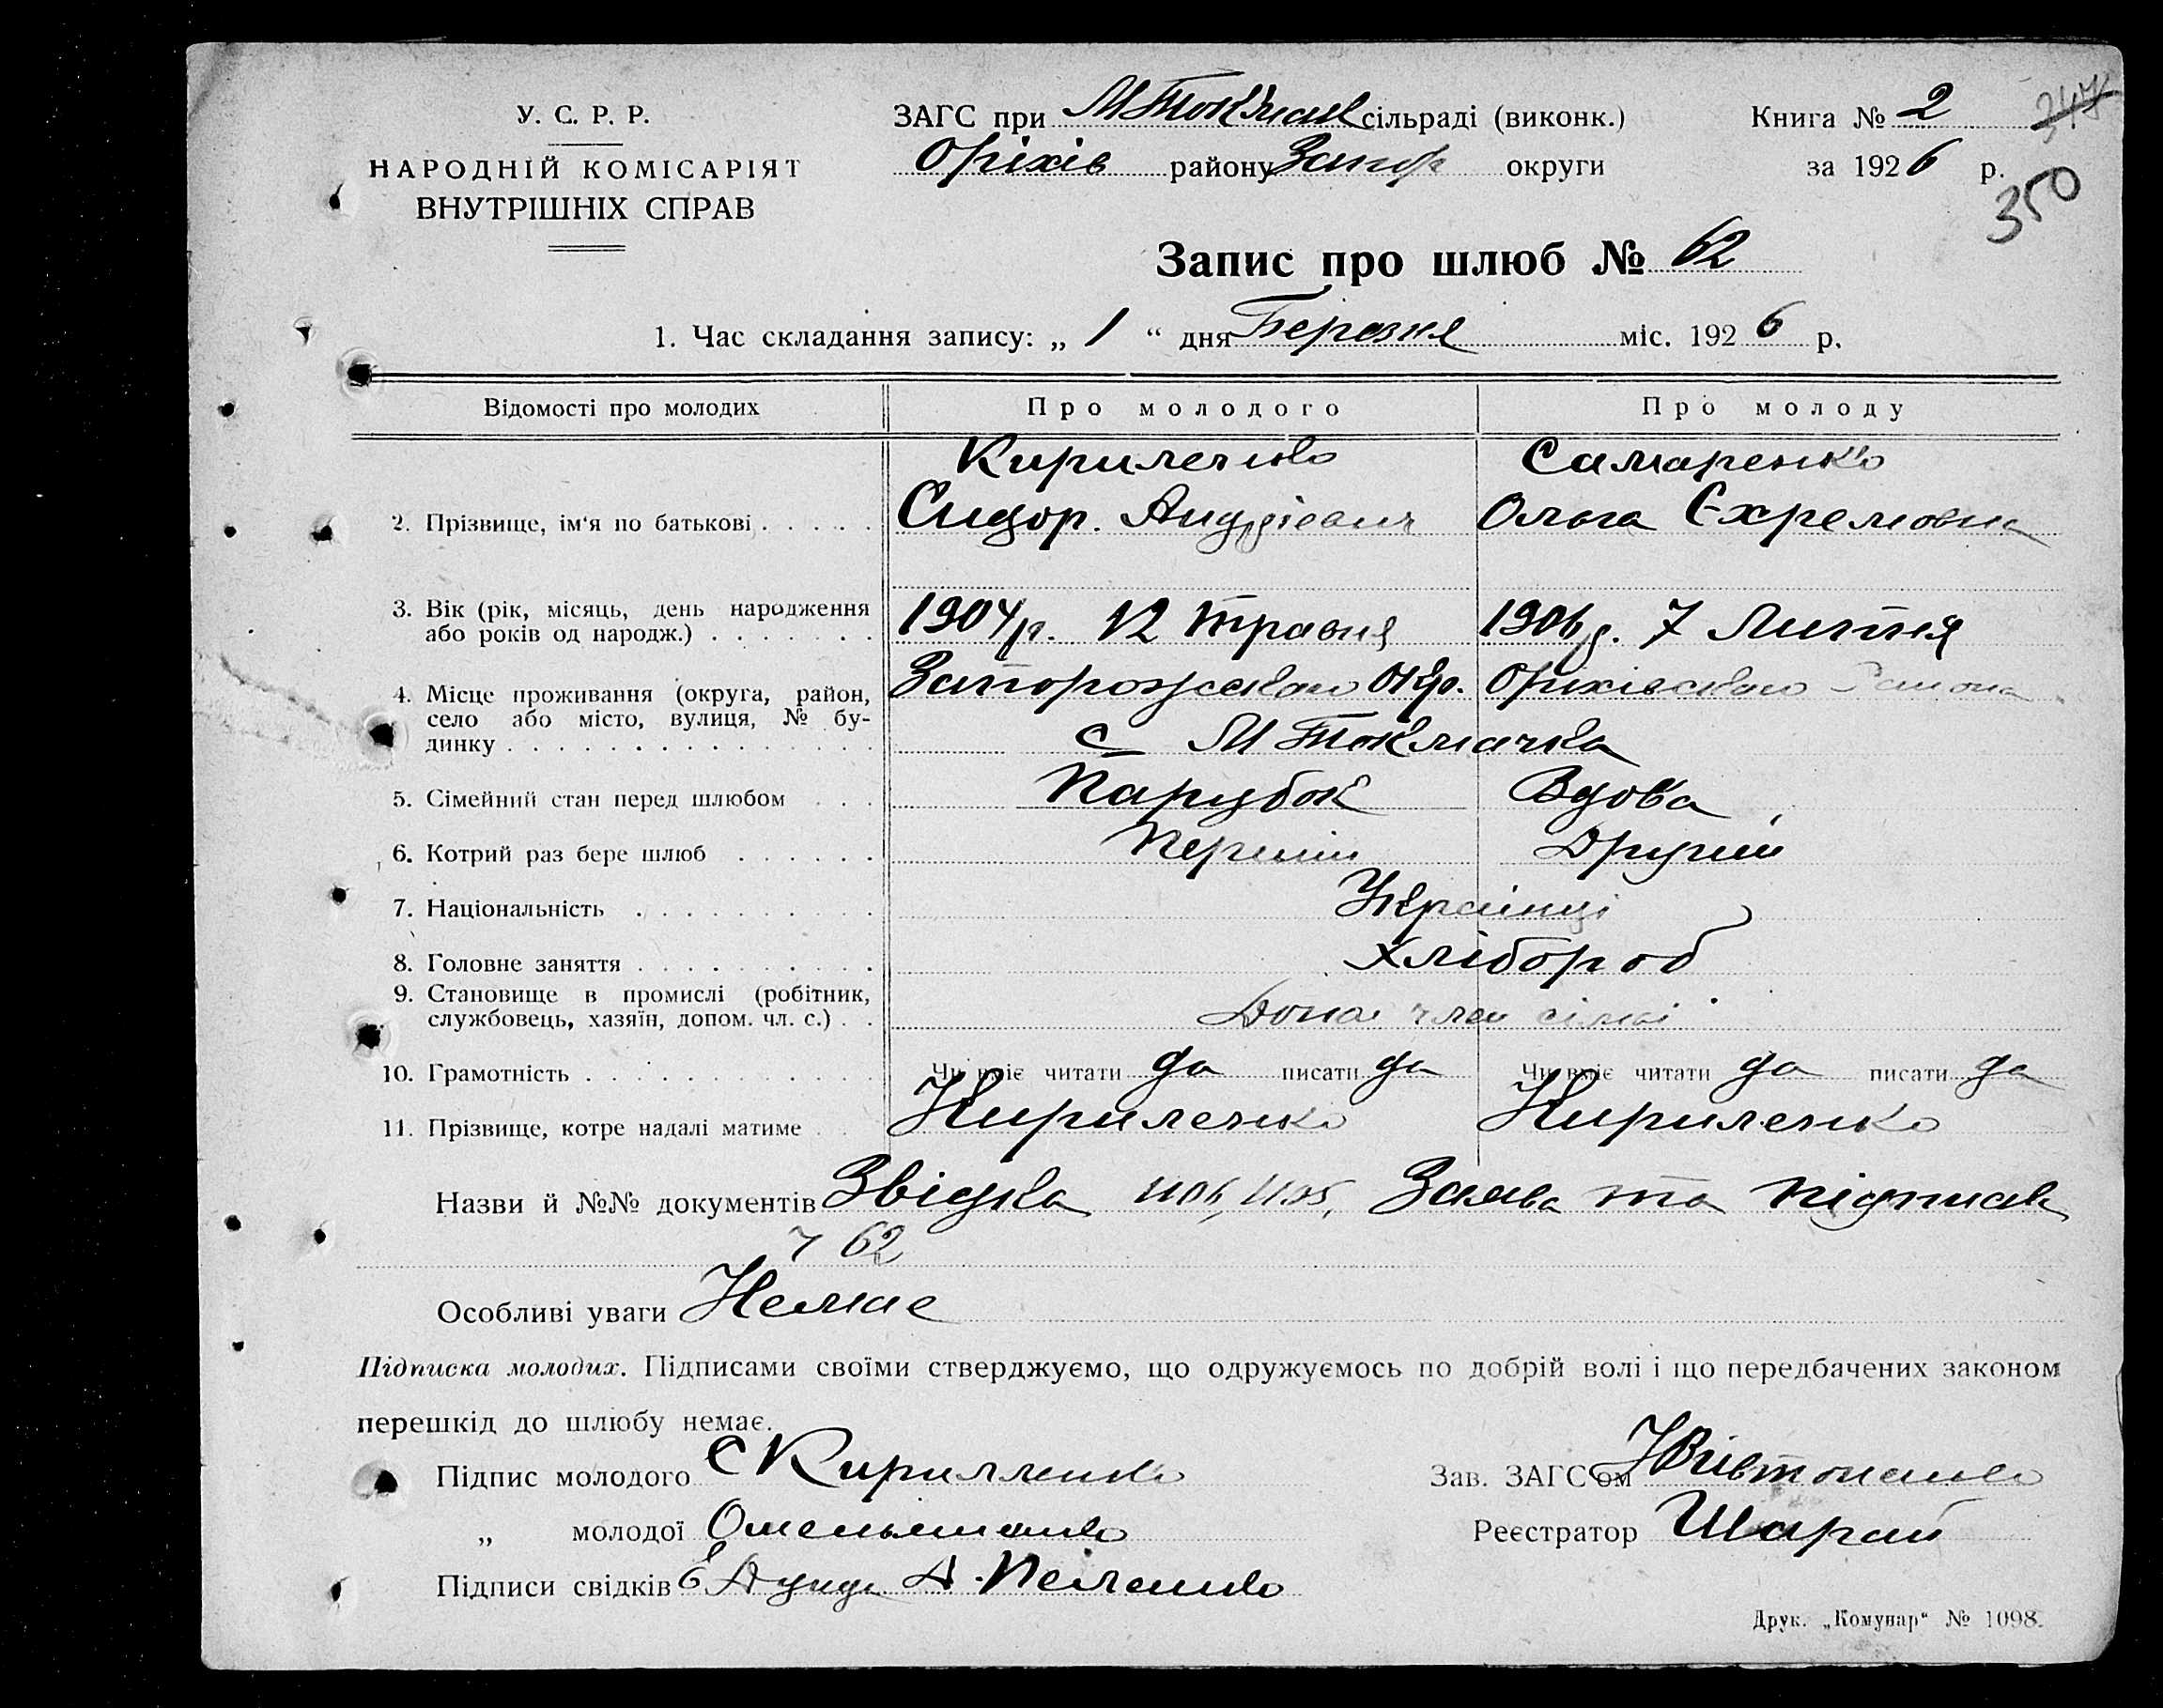 У. С. Р. Р.
НАРОДНІЙ КОМІСАРІЯТ
ВНУТРІШНІХ СПРАВ
ЗАГС при МТокмач сільраді (виконк.)
Оріхів району Запор округи
Книга № 2
за 1926 р.
347
350
Запис про шлюб № 62
1. Час складання запису: „ 1 “ дня Березня міс. 1926 р.
Відомості про молодих Про молодого Про молоду
Кириленко Самаренко
2. Прізвище, ім‘я по батькові Сидор. Андрієвич Ольга Єхремовна
3. Вік (рік, місяць, день народження
або років од народж.) 1904 р. 12 травня 1906 р. 7 Липня
4. Місце проживання (округа, район,
село або місто, вулиця, № бу-
динку Запорожського Окр. Оріхівського Района
с М Токмачка
5. Сімейний стан перед шлюбом Парубок Вдова
6. Котрий раз бере шлюб Перший Другий
7. Національність Українці
8. Головне заняття Хлібороб
9. Становище в промислі (робітник,
службовець, хазяїн, допом. чл. с.) член сімьі
10. Грамотність Чи вміє читати да писати да Чи вміє читати да писати да
11. Прізвище, котре надалі матиме Кириленко Кириленко
Назви й №№ документів Звідка 1106, 1105, Заява та підписк
7 62
Особливі уваги Немає
Підписка молодих. Підписами своїми стверджуємо, що одружуємось по добрій волі і що передбачених законом
перешкід до шлюбу немає.
Підпис молодого С Кирилленко
Зав. ЗАГС‘ом
„ молодої Омельяненко
Реєстратор Шарай
Підписи свідків
Друк. „Комунар“ № 1098.